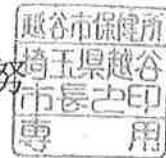 努
越谷市保健所
埼玉県越谷
市長之印
専用